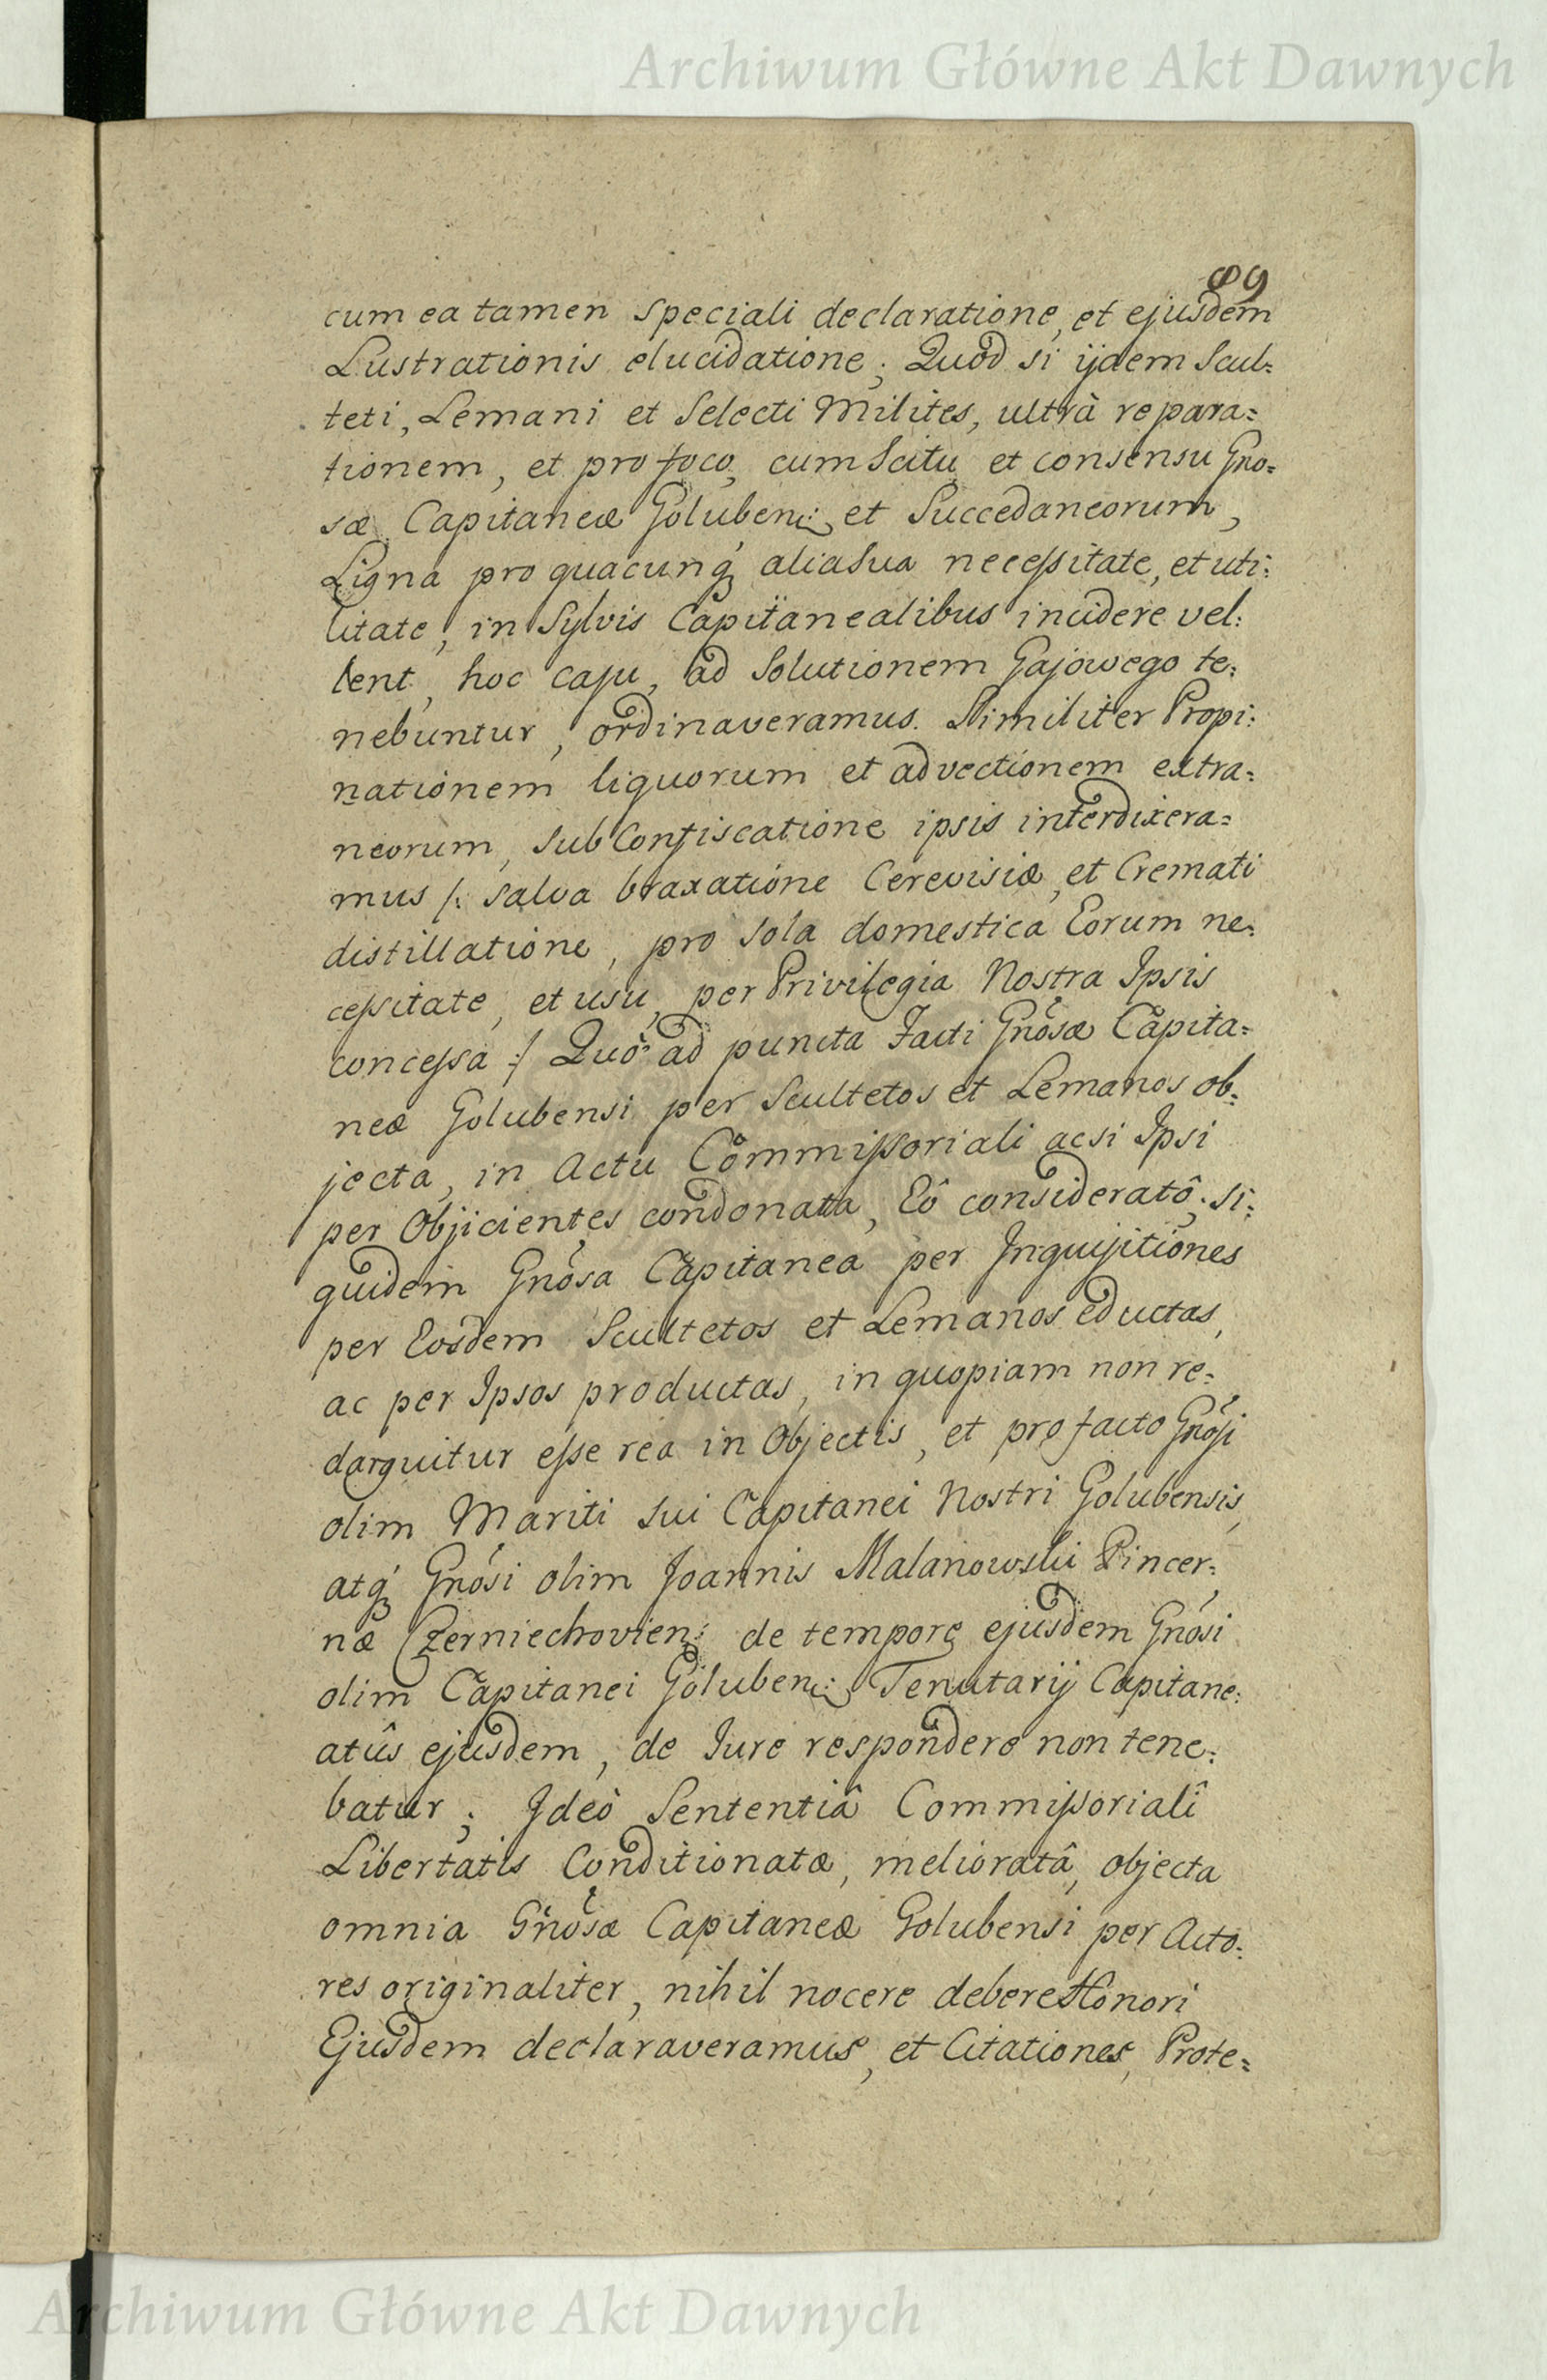 Archiwum Główne Akt Dawnych
89
cum ea tamen speciali declaratione, et ejusdem
Lustrationis elucidatione; Quod si ijdem Scul=
teti, Lemani et Selecti Milites, ultrà repara=
tionem, et pro foco, cum Scitu et consensu Gno=
sæ Capitaneæ Goluben: et Succedaneorum,
Ligna pro quacunq́ alia Sua necessitate, et uti=
litate, in Sylvis Capitanealibus incidere vel=
lent, hoc casu, ad Solutionem Gajowego te=
nebuntur, ordinaveramus. Similiter Propi=
nationem liquorum et advectionem extra=
neorum, sub Confiscatione ipsis interdixera=
mus /: salva braxatione Cerevisiæ, et Cremati
distillatione, pro sola domestica Eorum ne=
cessitate, et usu, per Privilegia Nostra Ipsis
concessa :/ Quò ad puncta Facti Gnosæ Capita=
neæ Golubensi per Scultetos et Lemanos ob=
jecta, in Actu Commissoriali acsi Ipsi
per Objicientes condonata, Eô consideratô, si=
quidem Gnosa Capitanea per Inquisitiones
per Eosdem Scultetos et Lemanos eductas,
ac per Ipsos productas, in quopiam non re=
darguitur esse rea in Objectis, et pro facto Gnosi
olim Mariti sui Capitanei Nostri Golubensis,
atq́ Gnosi olim Joannis Malanowski Pincer=
næ Czerniechovien: de tempore ejusdem Gnosi
olim Capitanei Goluben: Tenutarij Capitane=
atûs ejusdem, de Jure respondere non tene=
batur; Ideò Sententiâ Commissorialî
Libertatis Conditionatæ, melioratâ, objecta
omnia Gnosæ Capitaneæ Golubensi per Acto=
res originaliter, nihil nocere debere Honori
Ejusdem declaraveramus, et Citationes, Prote=
Archiwum Główne Akt Dawnych